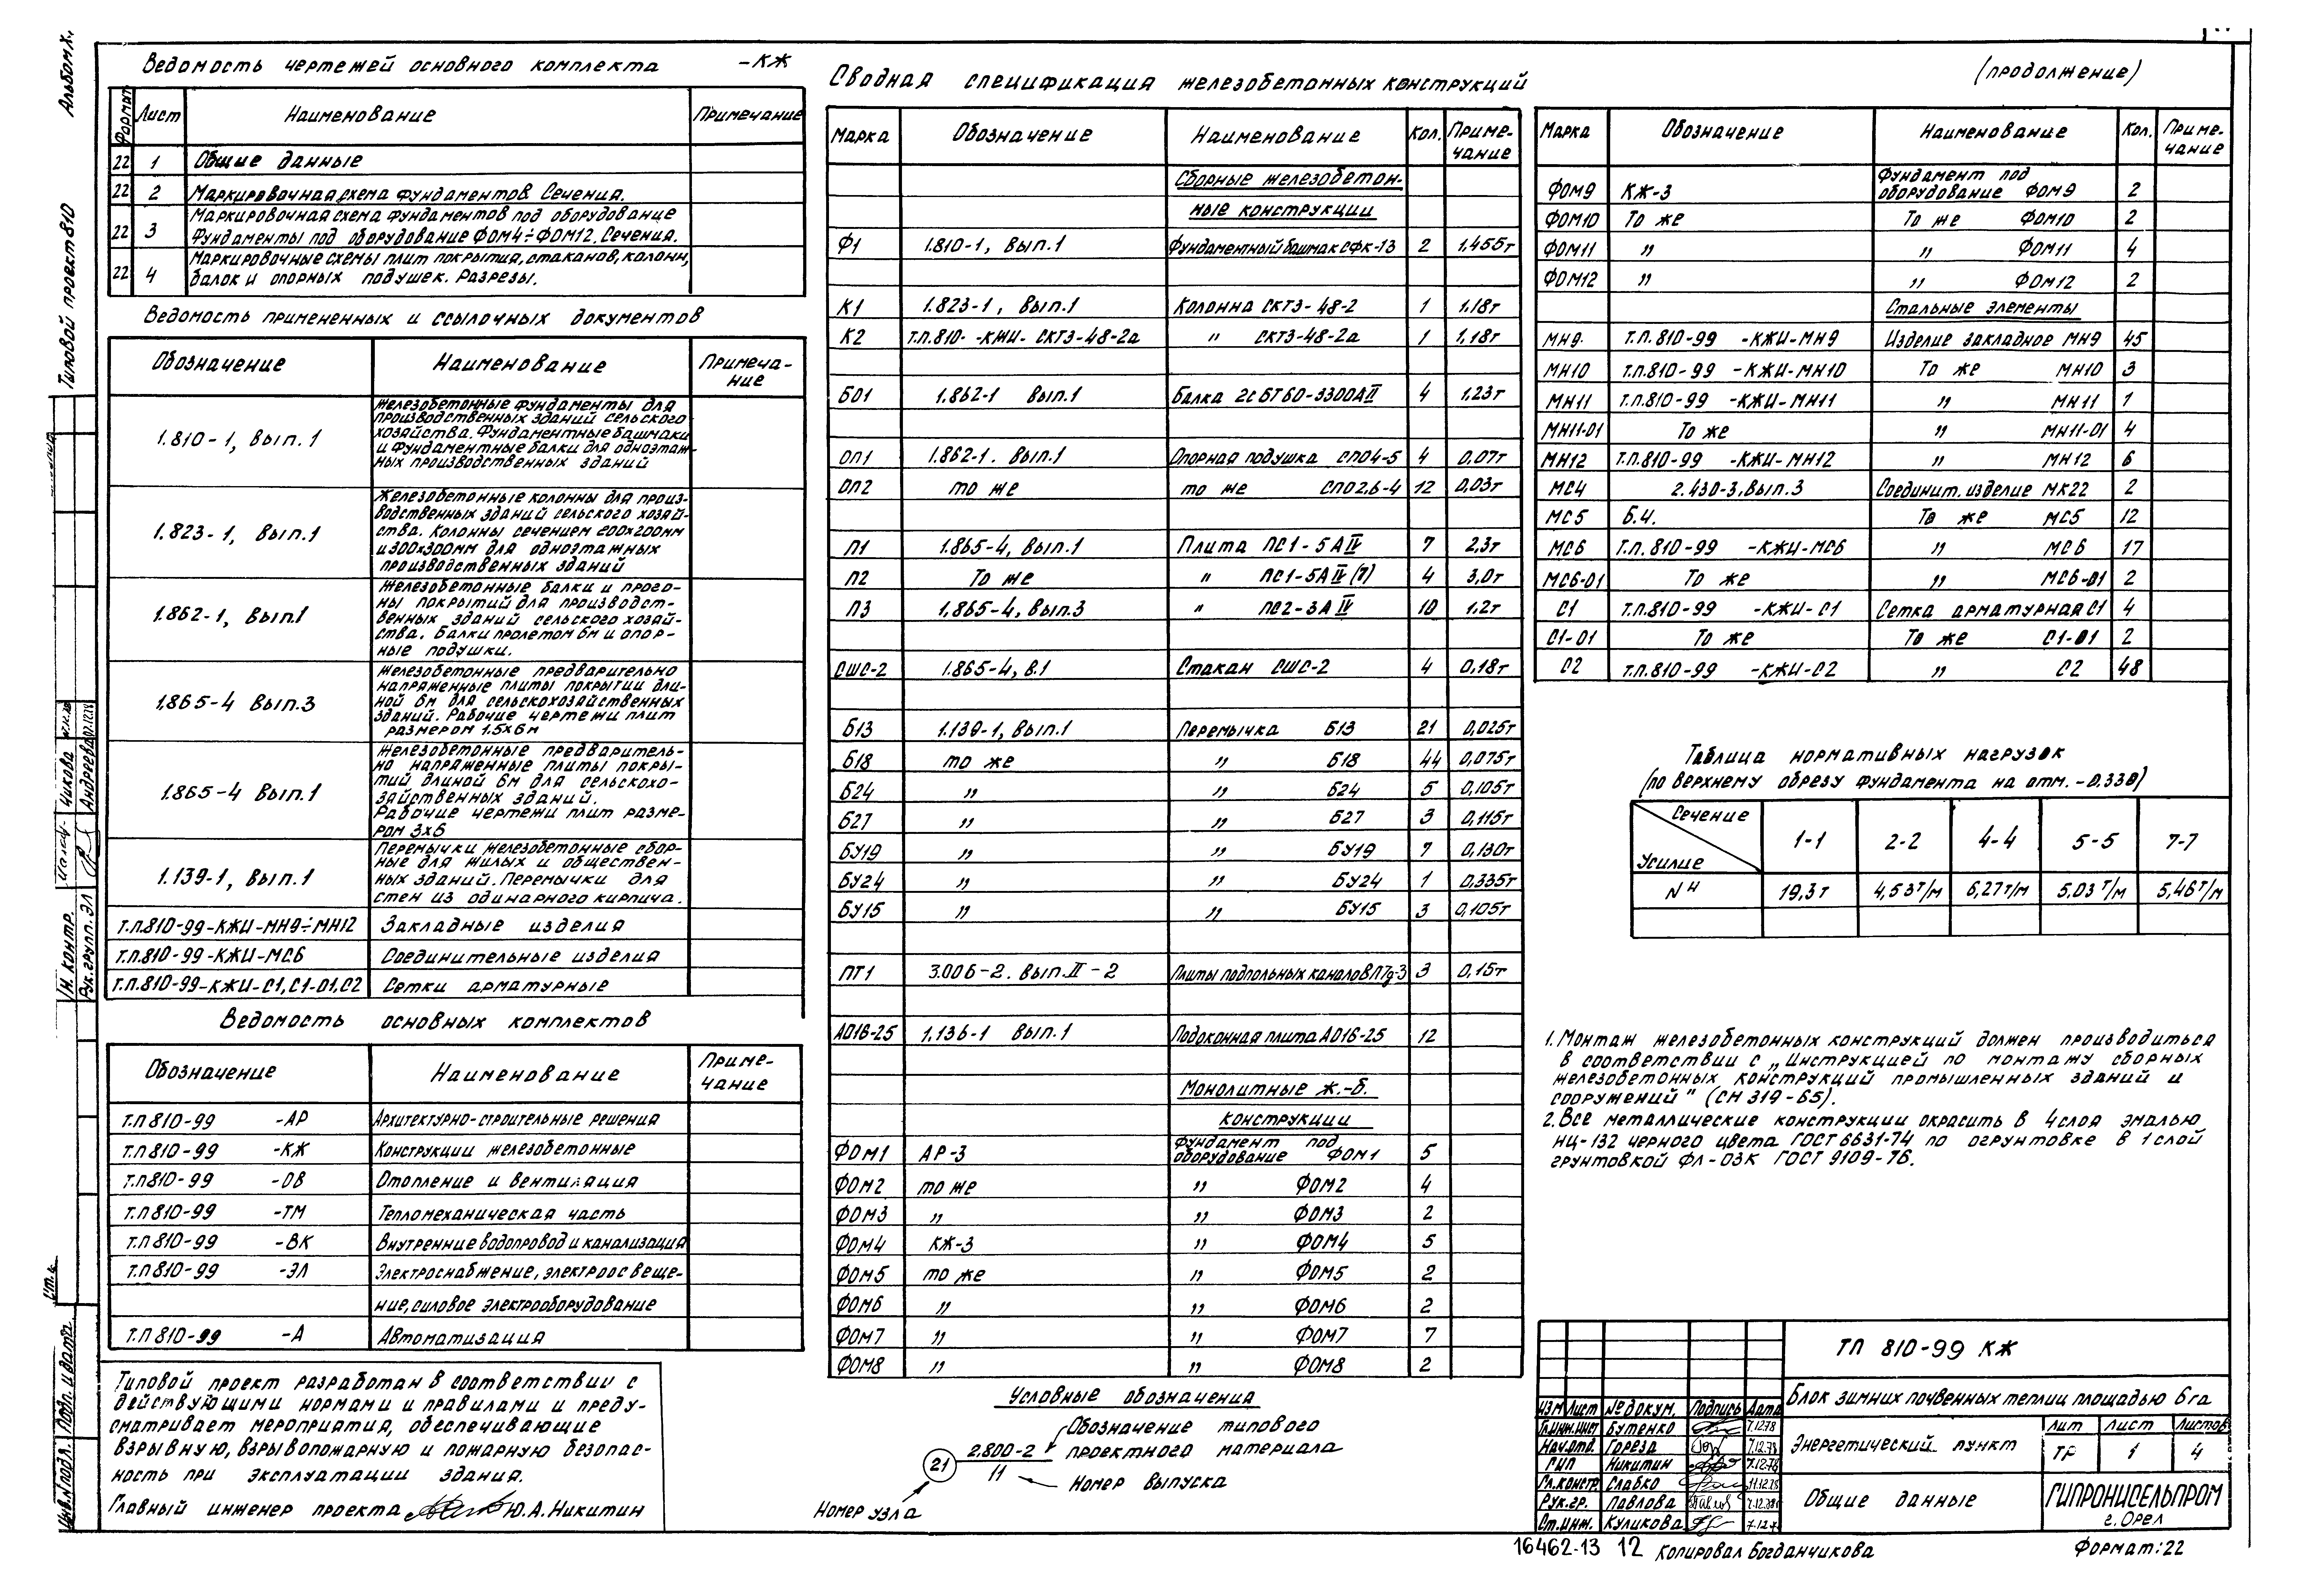 Альбом X.
Типовой проект 810
Ведомость чертежей основного комплекта -КЖ
Формат Лист Наименование Примечание
22 1 Общие данные
22 2 Маркировочная схема фундаментов. Сечения.
22 3 Маркировочная схема фундаментов под оборудование
Фундаменты под оборудование ФОМ4÷ФОМ12. Сечения.
22 4 Маркировочные схемы плит покрытия, стаканов, колонн,
балок и опорных подушек. Разрезы.
Ведомость примененных и ссылочных документов
Обозначение Наименование Примеча-
ние
1.810-1, Вып.1 Железобетонные фундаменты для
производственных зданий сельского
хозяйства. Фундаментные башмаки
и фундаментные балки для одноэтаж-
ных производственных зданий
1.823-1, Вып.1 Железобетонные колонны для произ-
водственных зданий сельского хозяй-
ства. Колонны сечением 200х200мм
и 300х300мм для одноэтажных
производственных зданий
1.862-1, Вып.1 Железобетонные балки и прого-
ны покрытий для производст-
венных зданий сельского хозяй-
ства. Балки пролетом 6м и опор-
ные подушки.
1.865-4 Вып.3 Железобетонные предварительно
напряженные плиты покрытии дли-
ной 6м для сельскохозяйственных
зданий. Рабочие чертежи плит
размером 1.5х6м
1.865-4 Вып.1 Железобетонные предваритель-
но напряженные плиты покры-
тий длиной 6м для сельскохо-
зяйственных зданий.
Рабочие чертежи плит разме-
ром 3х6
1.139-1, Вып.1 Перемычки железобетонные сбор-
ные для жилых и обществен-
ных зданий. Перемычки для
стен из одинарного кирпича.
Т.П.810-99-КЖИ-МН9÷МН12 Закладные изделия
Т.П.810-99-КЖИ-МС6 Соединительные изделия
Т.П.810-99-КЖИ-С1,С1-01,С2 Сетки арматурные
Ведомость основных комплектов
Обозначение Наименование Приме-
чание
Т.П 810-99 -АР Архитектурно-строительные решения
Т.П 810-99 -КЖ Конструкции железобетонные
Т.П 810-99 -ОВ Отопление и вентиляция
Т.П 810-99 -ТМ Тепломеханическая часть
Т.П 810-99 -ВК Внутренние водопровод и канализация
Т.П 810-99 -ЭЛ Электроснабжение, электроосвеще-
ние, силовое электрооборудование
Т.П 810-99 -А Автоматизация
Типовой проект разработан в соответствии с
действующими нормами и правилами и преду-
сматривает мероприятия, обеспечивающие
взрывную, взрывопожарную и пожарную безопас-
ность при эксплуатации здания.
Главный инженер проекта Ю.А.Никитин
Сводная спецификация железобетонных конструкций
Марка Обозначение Наименование Кол. Приме-
чание
Сборные железобетон-
ные конструкции
Ф1 1.810-1, Вып.1 Фундаментный башмак СФК-13 2 1.455т
К1 1.823-1, Вып.1 Колонна СКТ3-48-2 1 1,18т
К2 Т.П.810- -КЖИ- СКТ3-48-2а " СКТ3-48-2а 1 1,18т
БО1 1.862-1 Вып.1 Балка 2СБТ60-3300АII 4 1,23т
ОП1 1.862-1. Вып.1 Опорная подушка СПО4-5 4 0,07т
ОП2 то же то же СПО2.6-4 12 0,03т
П1 1.865-4, Вып.1 Плита ПС1-5АIV 7 2,3т
П2 То же " ПС1-5АIV(7) 4 3,0т
П3 1.865-4, Вып.3 " ПС2-3АIV 10 1,2т
СШС-2 1.865-4, В.1 Стакан СШС-2 4 0,18т
Б13 1.139-1, Вып.1 Перемычка Б13 21 0,025т
Б18 то же " Б18 44 0,075т
Б24 " " Б24 5 0,105т
Б27 " " Б27 3 0,115т
БУ19 " " БУ19 7 0,130т
БУ24 " " БУ24 1 0,335т
БУ15 " " БУ15 3 0,105т
ПТ1 3.006-2. Вып.II-2 Плиты подпольных каналов ПТд-3 3 0,15т
АО16-25 1.136-1 Вып.1 Подоконная плита АО16-25 12
Монолитные ж.-б.
конструкции
ФОМ1 АР-3 Фундамент под
оборудование ФОМ1 5
ФОМ2 то же " ФОМ2 4
ФОМ3 " " ФОМ3 2
ФОМ4 КЖ-3 " ФОМ4 5
ФОМ5 то же " ФОМ5 2
ФОМ6 " " ФОМ6 2
ФОМ7 " " ФОМ7 7
ФОМ8 " " ФОМ8 2
Условные обозначения
Обозначение типового
проектного материала
21 2.800-2
11
Номер выпуска
Номер узла
(продолжение)
Марка Обозначение Наименование Кол. Приме-
чание
ФОМ9 КЖ-3 Фундамент под
оборудование ФОМ9 2
ФОМ10 То же То же ФОМ10 2
ФОМ11 " " ФОМ11 4
ФОМ12 " " ФОМ12 2
Стальные элементы
МН9 Т.П.810-99 -КЖИ-МН9 Изделие закладное МН9 45
МН10 Т.П.810-99 -КЖИ-МН10 То же МН10 3
МН11 Т.П.810-99 -КЖИ-МН11 " МН11 1
МН11-01 То же " МН11-01 4
МН12 Т.П.810-99 -КЖИ-МН12 " МН12 6
МС4 2.430-3, Вып.3 Соединит. изделие МК22 2
МС5 Б.Ч. То же МС5 12
МС6 Т.П.810-99 -КЖИ-МС6 " МС6 17
МС6-01 То же " МС6-01 2
С1 Т.П.810-99 -КЖИ-С1 Сетка арматурная С1 4
С1-01 То же То же С1-01 2
С2 Т.П.810-99 -КЖИ-С2 " С2 48
Таблица нормативных нагрузок
(по верхнему обрезу фундамента на отм. -0.330)
Сечение
Усилие 1-1 2-2 4-4 5-5 7-7
Nн 19,3т 4,53т/м 6,27т/м 5,03т/м 5,46т/м
1. Монтаж железобетонных конструкций должен производиться
в соответствии с „Инструкцией по монтажу сборных
железобетонных конструкций промышленных зданий и
сооружений" (СН 319-65).
2. Все металлические конструкции окрасить в 4 слоя эмалью
НЦ-132 черного цвета ГОСТ 6631-74 по огрунтовке в 1 слой
грунтовкой ФЛ-03К ГОСТ 9109-76.
ТП 810-99 КЖ
Блок зимних почвенных теплиц площадью 6 га
Изм Лист № докум. Подпись Дата
Гл.инж.инст Бутенко 7.12.78
Нач.отд. Гореза 7.12.78
ГИП Никитин 7.12.78
Гл.констр. Славко 11.12.78
Рук.гр. Павлова 7.12.78
Ст.инж. Куликова 7.12.7
Энергетический пункт
Лит Лист Листов
ТР 1 4
Общие данные
ГИПРОНИСЕЛЬПРОМ
г. Орел
16462-13 12 Копировал Богданчикова Формат: 22
Н. контр. Чикова
Рук.групп. ЭЛ Андреева 07.12.78
Инв.№ подл. Подп. и дата